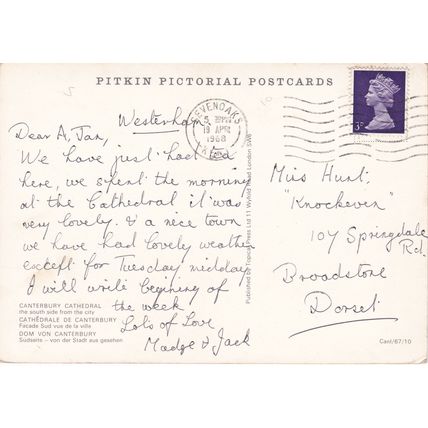 PITKIN PICTORIAL POSTCARDS
Westerham
SEVENOAKS
19 APR
1968
KENT
3D
Dear A, Jan,
We have just had tea
here, we spent the morning
at the Cathedral it was
very lovely & a nice town
we have had lovely weather
except for Tuesday midday
I will write begining of
the week
Lots of Love
Madge & Jack
Published by Topical Press Ltd 11 Wyfold Road London SW6
Miss Hunt,
"Knockeven"
107 Springdale
Rd.
Broadstone
Dorset
CANTERBURY CATHEDRAL
the south side from the city
CATHÉDRALE DE CANTERBURY
Facade Sud vue de la ville
DOM VON CANTERBURY
Sudseite - von der Stadt aus gesehen
Cant/67/10